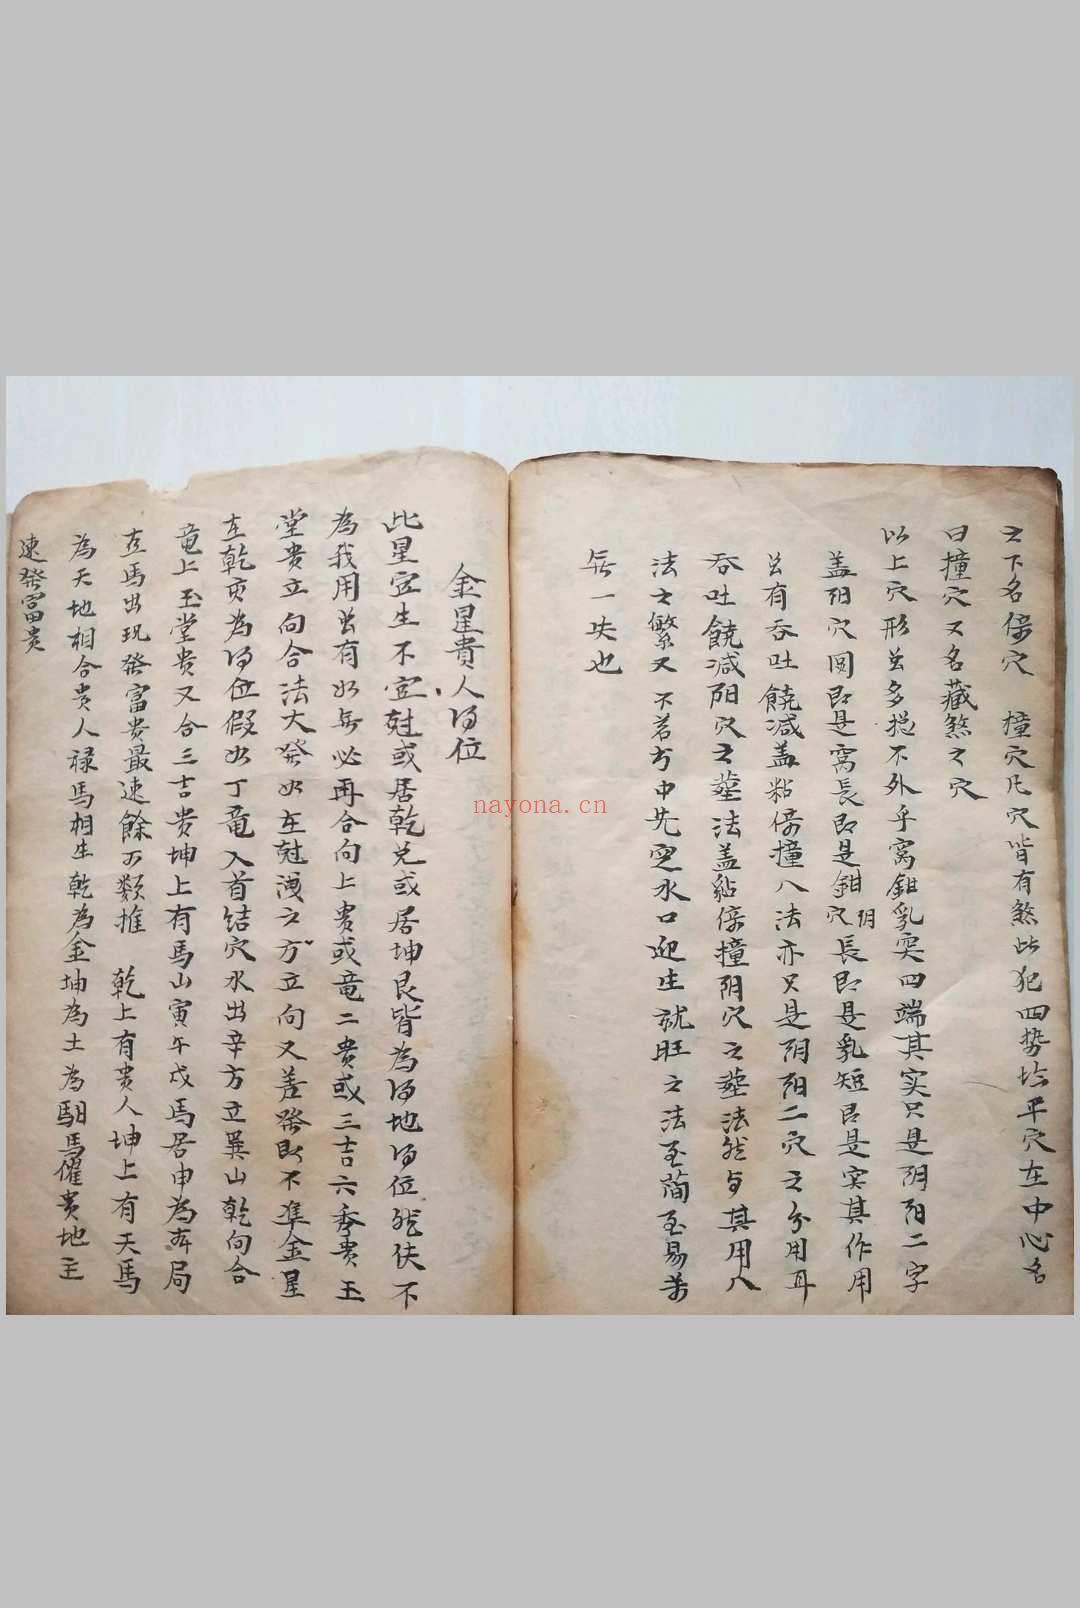 之下名倚穴　撞穴凡穴皆有煞此犯四势坮平穴在中心名
曰撞穴又名藏煞之穴
以上穴形虽多揔不外乎窝鉗乳突四端其实只是阴阳二字
盖阳穴圆即是窝長即是鉗阴穴長即是乳短即是突其作用
虽有吞吐饒减盖粘倚撞八法亦只是阴阳二穴之分用耳
吞吐饒减阳穴之塟法盖粘倚撞阴穴之塟法然与其用八
法之繁又不若方中先空水口迎生就旺之法至简至易萬
無一失也
金星貴人得位
此星宜生不宜尅或居乾兑或居坤艮皆為得地得位然伏不
為我用虽有如無必再合向上贵或竜二贵或三吉六秀贵玉
堂贵立向合法大發如在尅洩之方立向又差發即不準金星
在乾亥為得位假如丁竜入首结穴水出辛方立巽山乾向合
竜上玉堂贵又合三吉贵坤上有馬山寅午戌馬居申為本局
真馬出現發富贵最速餘可類推　乾上有贵人坤上有天馬
為天地相合贵人禄馬相生乾為金坤為土為馹馬催贵地主
速發富贵
nayona.cn